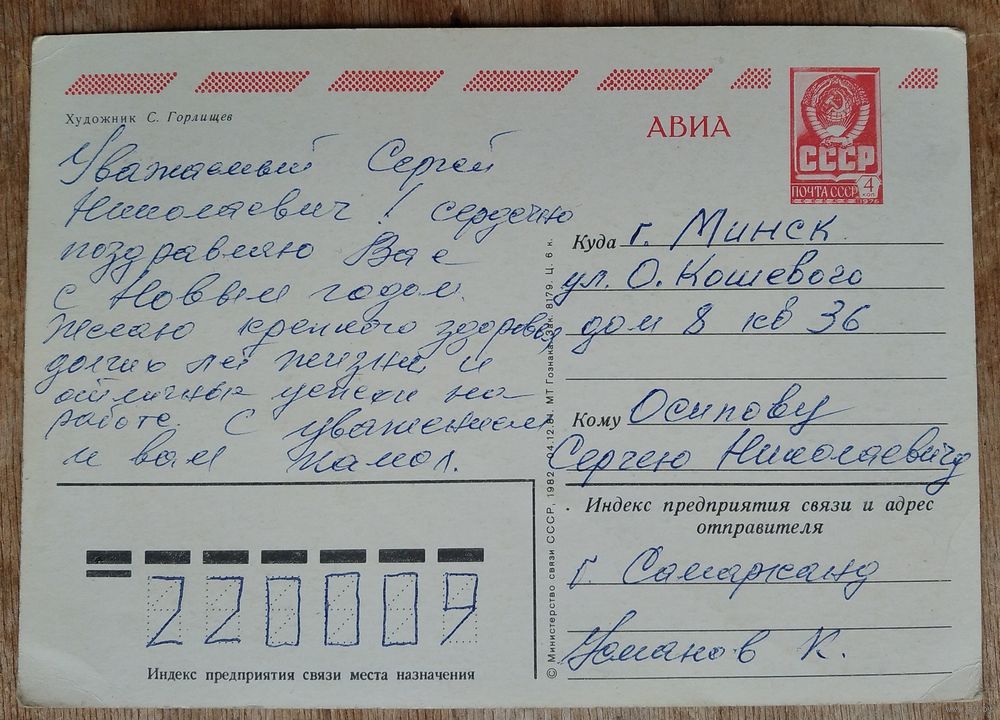 Художник С. Горлищев
АВИА
СССР
ПОЧТА СССР 4 коп
1976
Уважаемый Сергей
Николаевич! сердечно
поздравляю Вас
с Новым годом.
Желаю крепкого здоровья
долгих лет жизни и
отличных успехов на
работе. С уважением
к вам Камол.
Куда г. Минск
ул. О. Кошевого
дом 8 кв 36
Кому Осипову
Сергею Николаевичу
Индекс предприятия связи и адрес
отправителя
г. Самарканд
Усманов К.
220009
Индекс предприятия связи места назначения
© Министерство связи СССР, 1982. 04.12.81. МТ Гознака. Зак. 8179. Ц. 6 к.